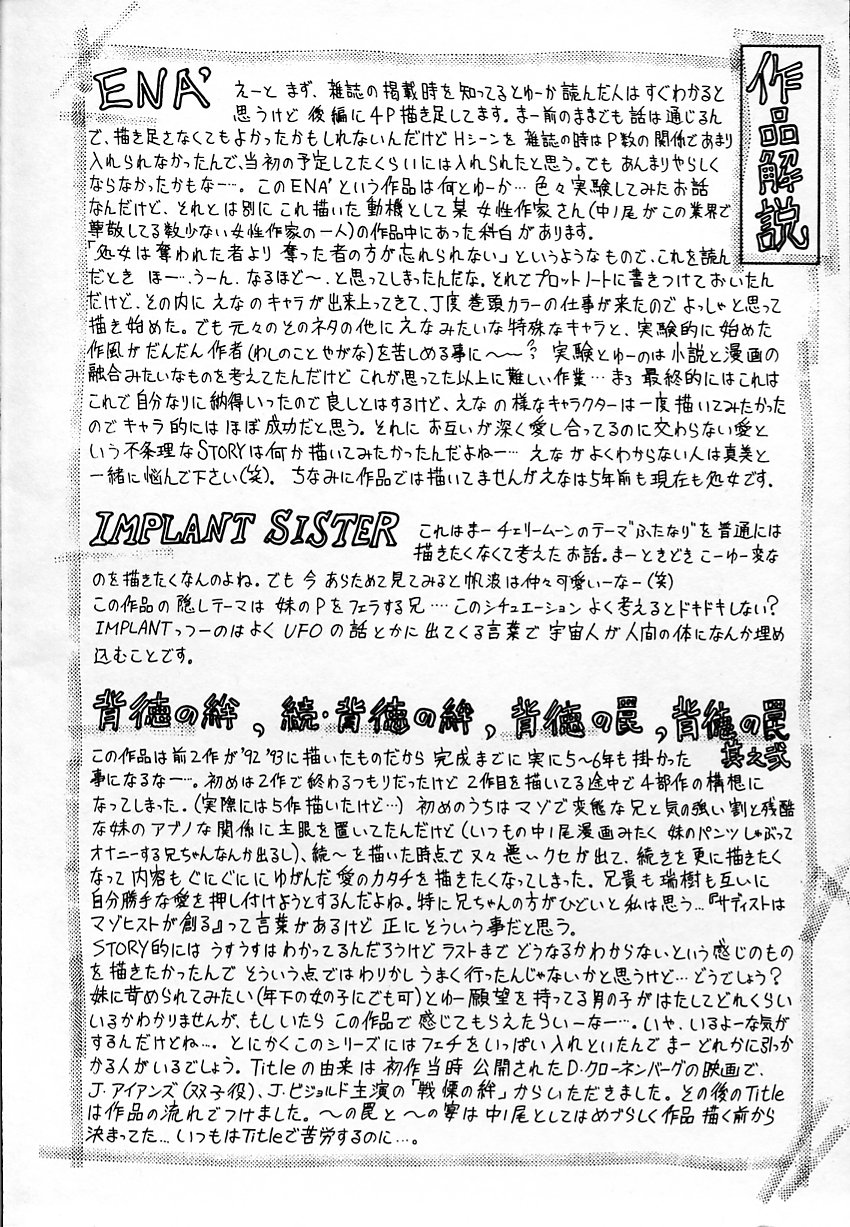 作品解説
ENA'
えーと まず、雑誌の掲載時を知ってるとゆーか読んだ人はすぐわかると
思うけど 後編に4P描き足してます。まー前のままでも話は通じるん
で、描き足さなくてもよかったかもしれないんだけどHシーンを雑誌の時はP数の関係であまり
入れられなかったんで、当初の予定してたくらいには入れられたと思う。でも あんまりやらしく
ならなかったかもなー…。このENA'という作品は何とゆーか…色々実験してみたお話
なんだけど、それとは別に これ描いた動機として某 女性作家さん(中ノ尾がこの業界で
尊敬してる数少ない女性作家の一人)の作品中にあった科白があります。
「処女は奪われた者より 奪った者の方が忘れられない」というようなもので、これを読ん
だとき ほー…、うーん、なるほど〜、と思ってしまったんだな。それでプロットノートに書きつけておいたん
だけど、その内に えなのキャラが出来上ってきて、丁度 巻頭カラーの仕事が来たので よっしゃ と思って
描き始めた。でも 元々のそのネタの他に えなみたいな特殊なキャラと、実験的に始めた
作風が だんだん 作者(わしのことやがな)を苦しめる事に〜〜? 実験とゆーのは小説と漫画の
融合みたいなものを考えてたんだけど これが思ってた以上に難しい作業…まぁ 最終的にはこれは
これで自分なりに納得いったので良しとはするけど、えなの様なキャラクターは一度描いてみたかった
のでキャラ的には ほぼ成功だと思う。それに お互いが深く愛し合ってるのに交わらない愛と
いう不条理なSTORYは何か描いてみたかったんだよねー… えながよくわからない人は真美と
一緒に悩んで下さい(笑)。 ちなみに作品では描いてませんがえなは5年前も現在も処女です。
IMPLANT SISTER
これはまー チェリームーンのテーマ"ふたなり"を普通には
描きたくなくて考えたお話。まーときどき こーゆー変な
のを描きたくなんのよね。でも 今 あらためて見てみると帆波は仲々可愛いーなー(笑)
この作品の隠しテーマは 妹のPをフェラする兄 …このシチュエーション よく考えるとドキドキしない?
IMPLANTっつーのは よく UFOの話とかに出てくる言葉で 宇宙人が人間の体になんか埋め
込むことです。
背徳の絆,続・背徳の絆,背徳の罠,背徳の罠
其之弐
この作品は前2作が'92'93に描いたものだから 完成までに実に5〜6年も掛かった
事になるなー…。初めは2作で終わるつもりだったけど 2作目を描いてる途中で4部作の構想に
なってしまった。(実際には5作描いたけど…) 初めのうちは マゾで変態な兄と気の強い割と残酷
な妹のアブノな関係に主眼を置いてたんだけど(いつもの中ノ尾漫画みたく 妹のパンツしゃぶって
オナニーする兄ちゃんなんか出るし)、続〜を描いた時点で又々悪いクセが出て、続きを更に描きたく
なって内容もぐにぐににゆがんだ愛のカタチを描きたくなってしまった。兄貴も瑞樹も互いに
自分勝手な愛を押し付けようとするんだよね。特に兄ちゃんの方がひどいと私は思う…『サディストは
マゾヒストが創る』って言葉があるけど 正に そういう事だと思う。
STORY的には うすうすは わかってるんだろうけど ラストまで どうなるかわからないという感じのもの
を描きたかったんで そういう点ではわりかし うまく行ったんじゃないかと思うけど…どうでしょう?
妹に苛められてみたい(年下の女の子にでも可)とゆー願望を持ってる男の子がはたしてどれくらい
いるかわかりませんが、もしいたら この作品で感じてもらえたらいーなー…。いや、いるよーな気が
するんだけどね…。とにかくこのシリーズにはフェチをいっぱい入れといたんで まー どれかに引っか
かる人がいるでしょう。Titleの由来は 初作当時 公開されたD・クローネンバーグの映画で、
J・アイアンズ(双子役)、J・ビジョルド主演の「戦慄の絆」からいただきました。その後のTitle
は作品の流れでつけました。〜の罠と〜の宴は中ノ尾としてはめづらしく作品描く前から
決まってた…いつもはTitleで苦労するのに…。